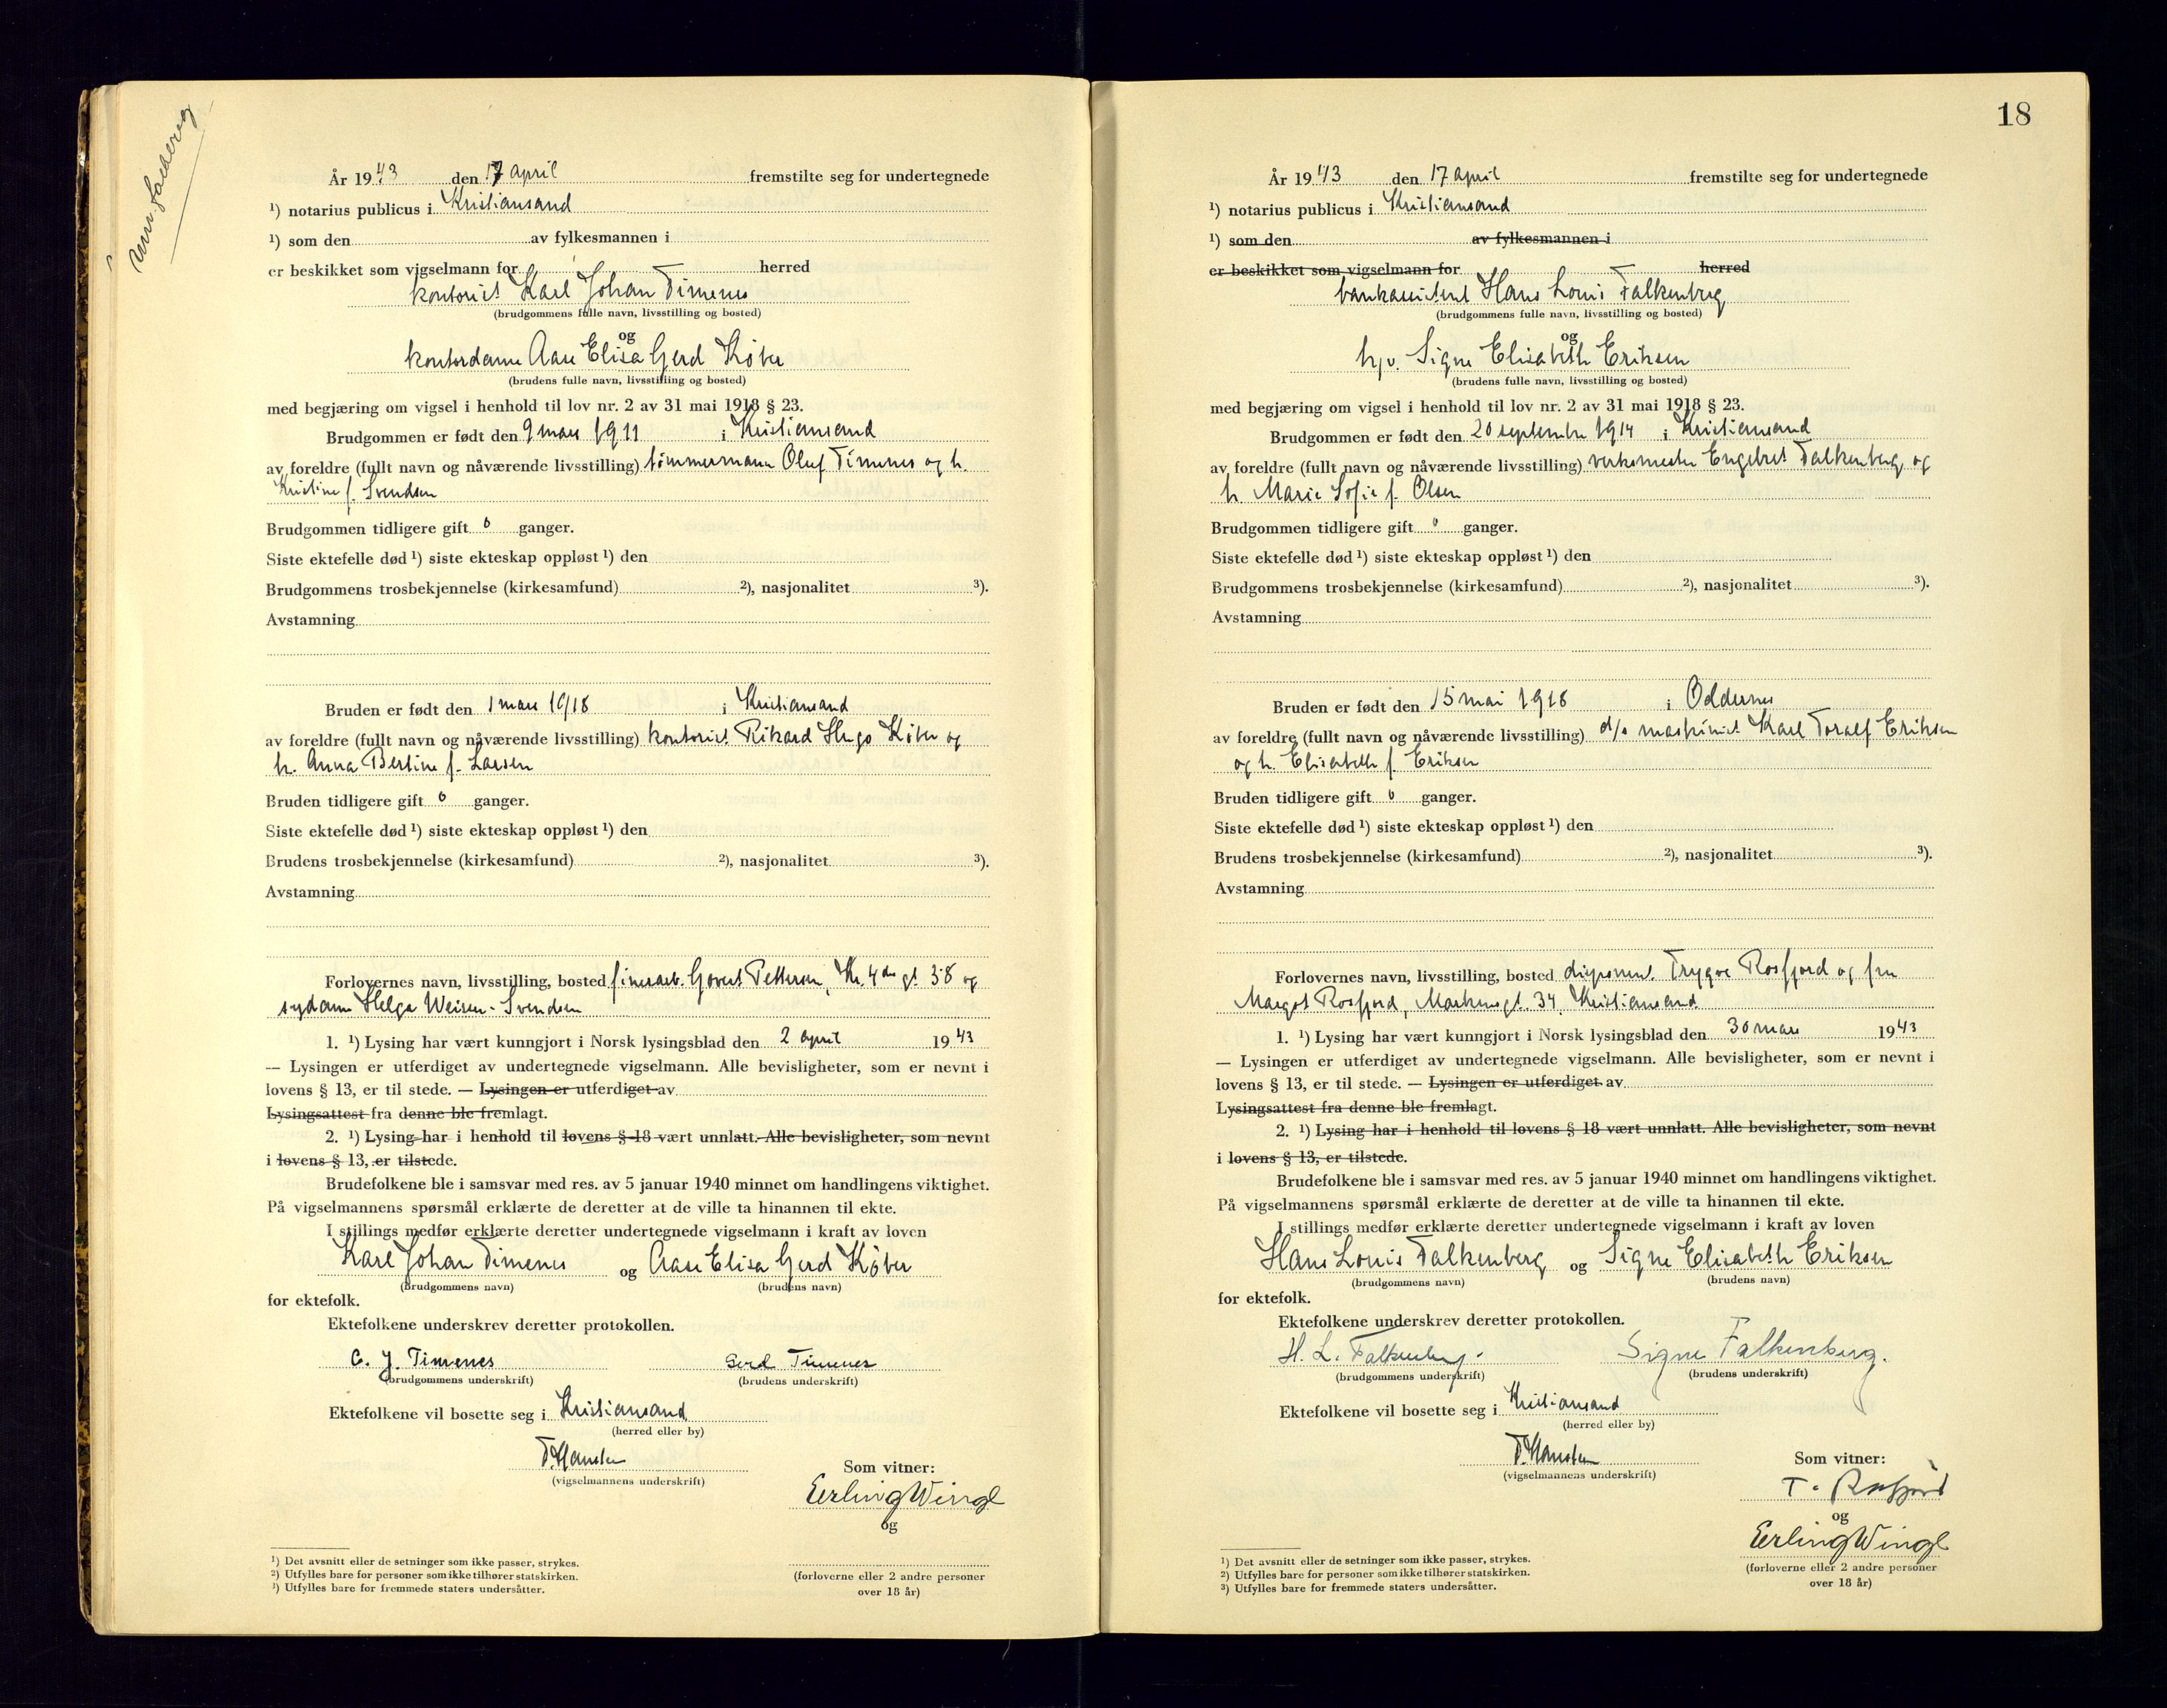 År 1943 den 17 april fremstilte seg for undertegnede
¹) notarius publicus i Kristiansand
¹) som den av fylkesmannen i
er beskikket som vigselmann for herred
kontorist Karl Johan Timenes
(brudgommens fulle navn, livsstilling og bosted)
og
kontordame Aase Elisa Gerd Køber
(brudens fulle navn, livsstilling og bosted)
med begjæring om vigsel i henhold til lov nr. 2 av 31 mai 1918 § 23.
Brudgommen er født den 9 mars 1911 i Kristiansand
av foreldre (fullt navn og nåværende livsstilling) tømmermann Oluf Timenes og h.
Kristine f. Svendsen
Brudgommen tidligere gift 0 ganger.
Siste ektefelle død ¹) siste ekteskap oppløst ¹) den
Brudgommens trosbekjennelse (kirkesamfund) ²), nasjonalitet ³).
Avstamning
Bruden er født den 1 mars 1918 i Kristiansand
av foreldre (fullt navn og nåværende livsstilling) kontorist Rikard Hugo Køber og
h. Anna Bertine f. Larsen
Bruden tidligere gift 0 ganger.
Siste ektefelle død ¹) siste ekteskap oppløst ¹) den
Brudens trosbekjennelse (kirkesamfund) ²), nasjonalitet ³).
Avstamning
Forlovernes navn, livsstilling, bosted finerarb. Govert Pettersen, Kr. 4de gt 38 og
sydame Helga Weisen-Svendsen
1. ¹) Lysing har vært kunngjort i Norsk lysingsblad den 2 april 1943
— Lysingen er utferdiget av undertegnede vigselmann. Alle bevisligheter, som er nevnt i
lovens § 13, er til stede. — Lysingen er utferdiget av
Lysingsattest fra denne ble fremlagt.
2. ¹) Lysing har i henhold til lovens § 18 vært unnlatt. Alle bevisligheter, som nevnt
i lovens § 13, er tilstede.
Brudefolkene ble i samsvar med res. av 5 januar 1940 minnet om handlingens viktighet.
På vigselmannens spørsmål erklærte de deretter at de ville ta hinannen til ekte.
I stillings medfør erklærte deretter undertegnede vigselmann i kraft av loven
Karl Johan Timenes og Aase Elisa Gerd Køber
(brudgommens navn) (brudens navn)
for ektefolk.
Ektefolkene underskrev deretter protokollen.
C. J. Timenes Gerd Timenes
(brudgommens underskrift) (brudens underskrift)
Ektefolkene vil bosette seg i Kristiansand
(herred eller by)
T. Hansten
(vigselmannens underskrift)
Som vitner:
Erling Wingl
og
(forloverne eller 2 andre personer
over 18 år)
¹) Det avsnitt eller de setninger som ikke passer, strykes.
²) Utfylles bare for personer som ikke tilhører statskirken.
³) Utfylles bare for fremmede staters undersåtter.
18
År 1943 den 17 april fremstilte seg for undertegnede
¹) notarius publicus i Kristiansand
¹) som den av fylkesmannen i
er beskikket som vigselmann for herred
bankassistent Hans Louis Falkenberg
(brudgommens fulle navn, livsstilling og bosted)
og
hjv. Signe Elisabeth Eriksen
(brudens fulle navn, livsstilling og bosted)
med begjæring om vigsel i henhold til lov nr. 2 av 31 mai 1918 § 23.
Brudgommen er født den 20 september 1914 i Kristiansand
av foreldre (fullt navn og nåværende livsstilling) verksmester Engebret Falkenberg og
h. Marie Sofie f. Olsen
Brudgommen tidligere gift 0 ganger.
Siste ektefelle død ¹) siste ekteskap oppløst ¹) den
Brudgommens trosbekjennelse (kirkesamfund) ²), nasjonalitet ³).
Avstamning
Bruden er født den 15 mai 1918 i Oddernes
av foreldre (fullt navn og nåværende livsstilling) d/s maskinist Karl Toralf Eriksen
og h. Elisabeth f. Eriksen
Bruden tidligere gift 0 ganger.
Siste ektefelle død ¹) siste ekteskap oppløst ¹) den
Brudens trosbekjennelse (kirkesamfund) ²), nasjonalitet ³).
Avstamning
Forlovernes navn, livsstilling, bosted disponent Trygve Rosfjord og fru
Margot Rosfjord, Markensgt. 34, Kristiansand
1. ¹) Lysing har vært kunngjort i Norsk lysingsblad den 30 mars 1943
— Lysingen er utferdiget av undertegnede vigselmann. Alle bevisligheter, som er nevnt i
lovens § 13, er til stede. — Lysingen er utferdiget av
Lysingsattest fra denne ble fremlagt.
2. ¹) Lysing har i henhold til lovens § 18 vært unnlatt. Alle bevisligheter, som nevnt
i lovens § 13, er tilstede.
Brudefolkene ble i samsvar med res. av 5 januar 1940 minnet om handlingens viktighet.
På vigselmannens spørsmål erklærte de deretter at de ville ta hinannen til ekte.
I stillings medfør erklærte deretter undertegnede vigselmann i kraft av loven
Hans Louis Falkenberg og Signe Elisabeth Eriksen
(brudgommens navn) (brudens navn)
for ektefolk.
Ektefolkene underskrev deretter protokollen.
H. L. Falkenberg. Signe Falkenberg.
(brudgommens underskrift) (brudens underskrift)
Ektefolkene vil bosette seg i Kristiansand
(herred eller by)
T. Hansten
(vigselmannens underskrift)
Som vitner:
T. Rosfjord
og
Erling Wingl
(forloverne eller 2 andre personer
over 18 år)
¹) Det avsnitt eller de setninger som ikke passer, strykes.
²) Utfylles bare for personer som ikke tilhører statskirken.
³) Utfylles bare for fremmede staters undersåtter.